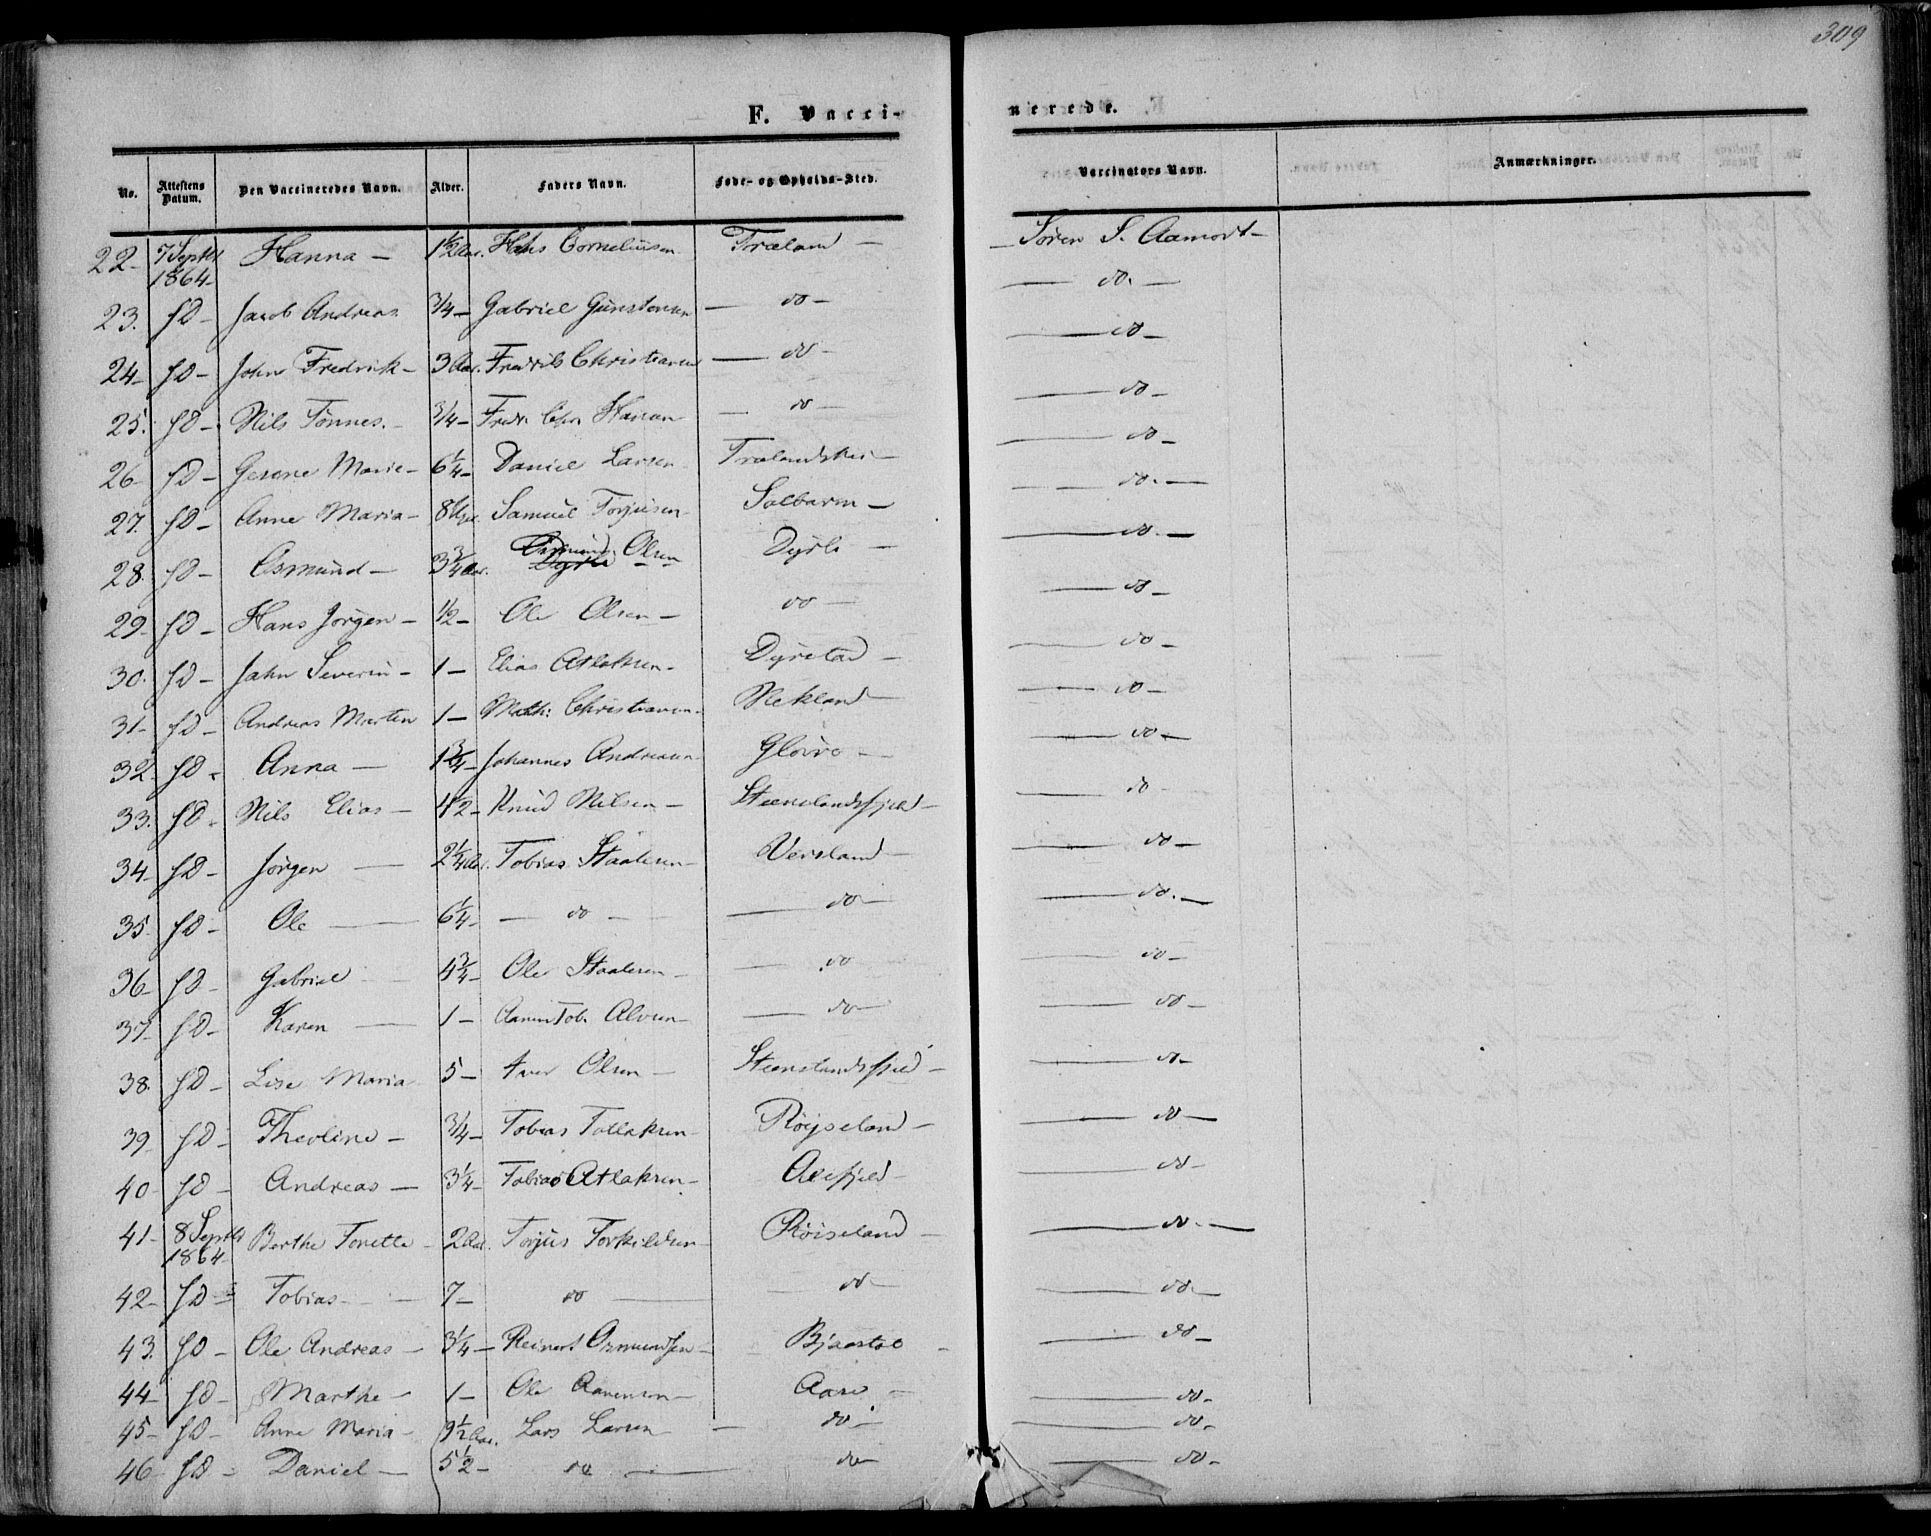 309
F. Vacci-
nerede.
No. Attestens Datum. Den Vaccineredes Navn. Alder. Faders Navn. Føde- og Opholds-Sted. Vaccinators Navn. Anmærkninger.
22- 7 Septbr 1864- Hanna - 1½ Aar. Hans Corneliusen Træland - Søren S. Aamodt -
23. fD - Jacob Andreas ¾ - Gabriel Gunstensen - do - - do. -
24- fD - John Fredrik - 3 Aar. Fredrik Christiansen - do - - do -
25. fD - Nils Tønnes. - ¾ - Fredr. Chr. Hansen - do - - do -
26- fD - Gesene Marie - 6¼ - Daniel Larsen Trælandskei - - do -
27. fD - Anne Maria - 8 Samuel Torjusen - - do. -
28. fD - Osmund - 3¾ Aar. Olsen Dyrli - - do. -
29- fD - Hans Jørgen - ½ - Ole Olsen - do - - do -
30. fD - John Severin - 1 - Elias Atlaksen - Dyrstad - - do -
31- fD - Andreas Martin 1 - Math: Christiansen - Rekland - - do -
32- fD - Anna - 1¾ - Johannes Andreasen - - do -
33. fD - Nils Elias - Knud Nilsen - Steenslandsfjeld - - do -
34- fD - Jørgen - 2¼ Aar. Tobias Staalesen - Versland - - do -
35. fD - Ole - 6¼ - - do - - do - - do. -
36- fD - Gabriel - 4¾ - Ole Staalesen - - do - - do -
37- fD - Karen - 1 - Tob. - do - - do -
38. fD - Lise Maria 5 - Iver Olsen - Steenslandsfjeld - - do -
39. fD - Theoline - ¾ - Tobias Tallaksen - Röyseland - - do -
40- fD - Andreas - 3¼ - Tobias Atlaksen - - do -
41- 8 Septbr 1864- Berthe Tonette - 2 Aar. Torjus Torkildsen - Röiseland - - do. -
42- fD - Tobias - 7 - do - - do - - do. -
43. fD - Ole Andreas - 3¼ - Reinert Osmundsen - - do -
44- fD - Marthe - 1 - Ole Aanensen - Aase - - do -
45- fD - Anne Maria - 9½ Aar. Lars Larsen - - do - - do -
46- fD - Daniel - 5½ - do - do - - do -